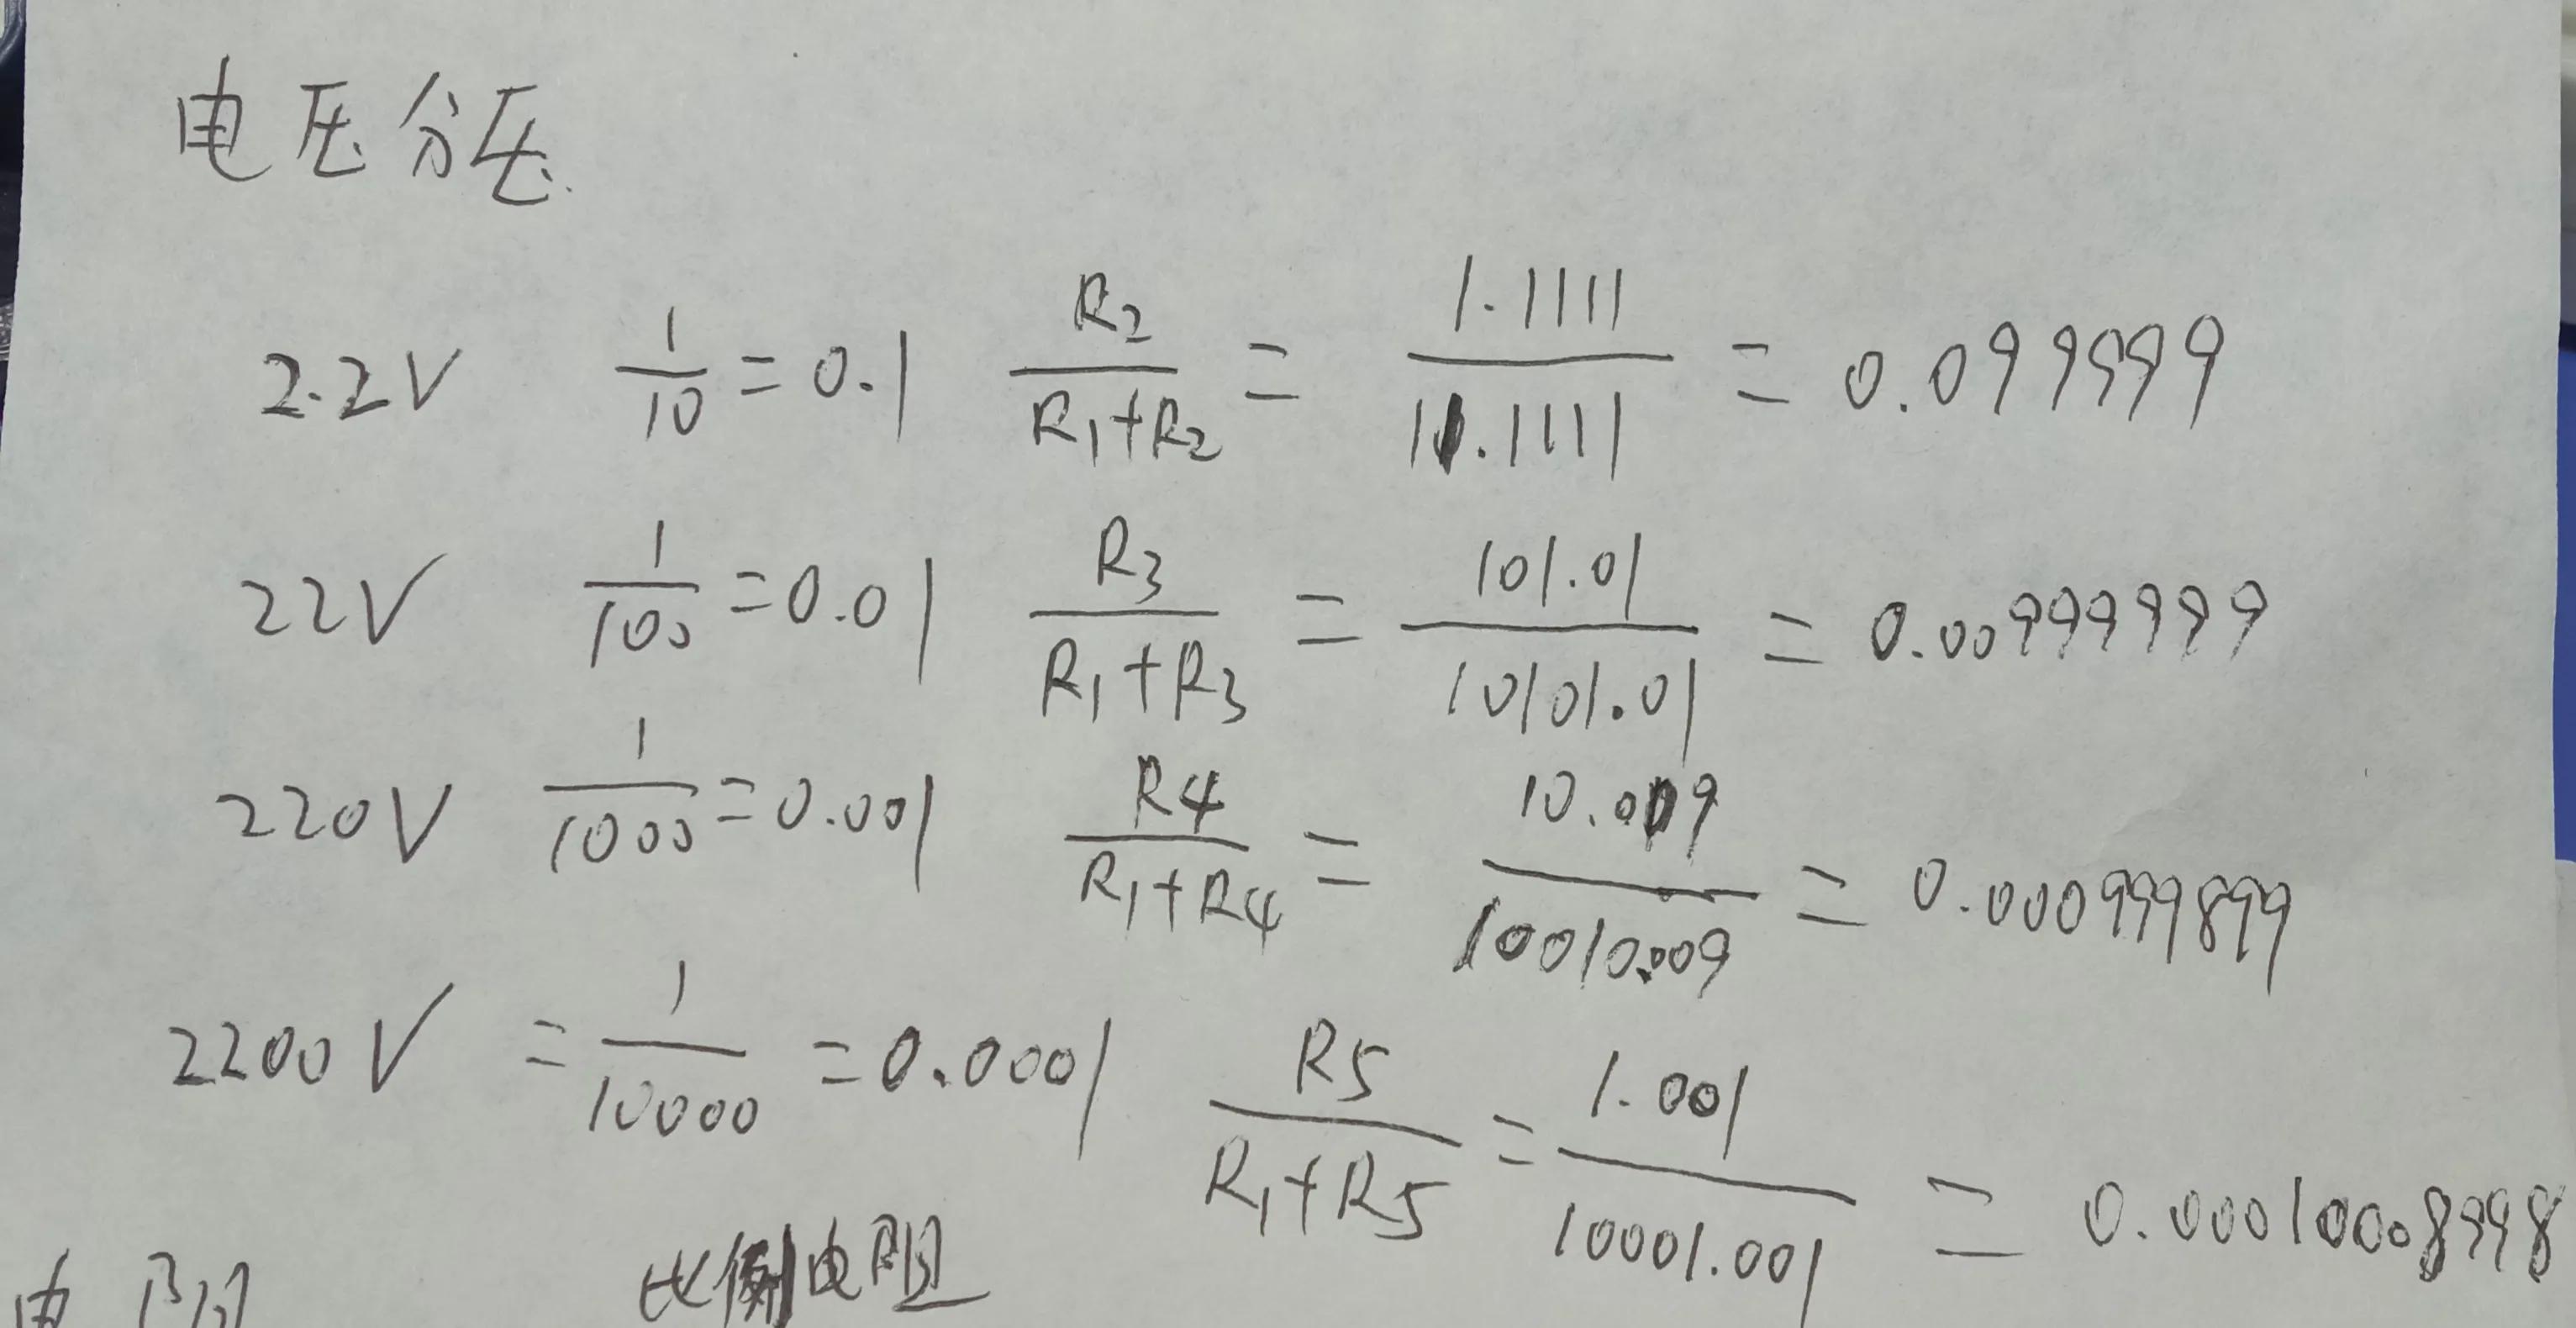 电压分压
2.2V 1/10 = 0.1 R2/(R1+R2) = 1.1111/11.1111 = 0.099999
22V 1/100 = 0.01 R3/(R1+R3) = 101.01/10101.01 = 0.00999999
220V 1/1000 = 0.001 R4/(R1+R4) = 10.009/10010.009 = 0.000999899
2200V = 1/10000 = 0.0001 R5/(R1+R5) = 1.001/10001.001 = 0.00010008998
电阻 比例电阻